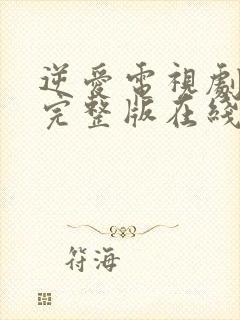 逆愛電視劇
完整版在綫
符海